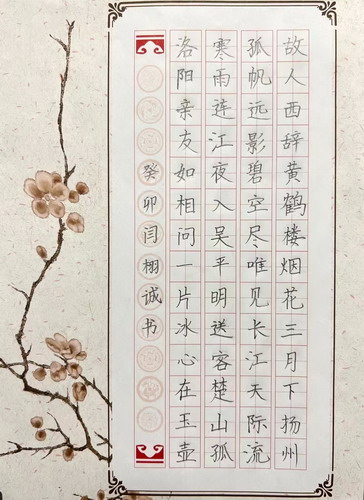 故人西辞黄鹤楼烟花三月下扬州
孤帆远影碧空尽唯见长江天际流
寒雨连江夜入吴平明送客楚山孤
洛阳亲友如相问一片冰心在玉壶
癸卯闫栩诚书